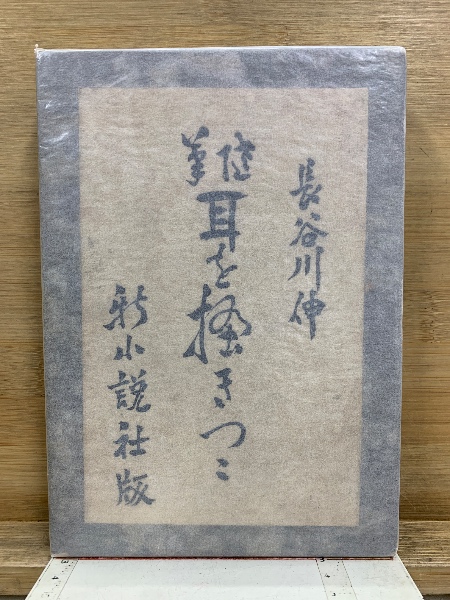 長谷川伸
随筆
耳を掻きつゝ
新小説社版